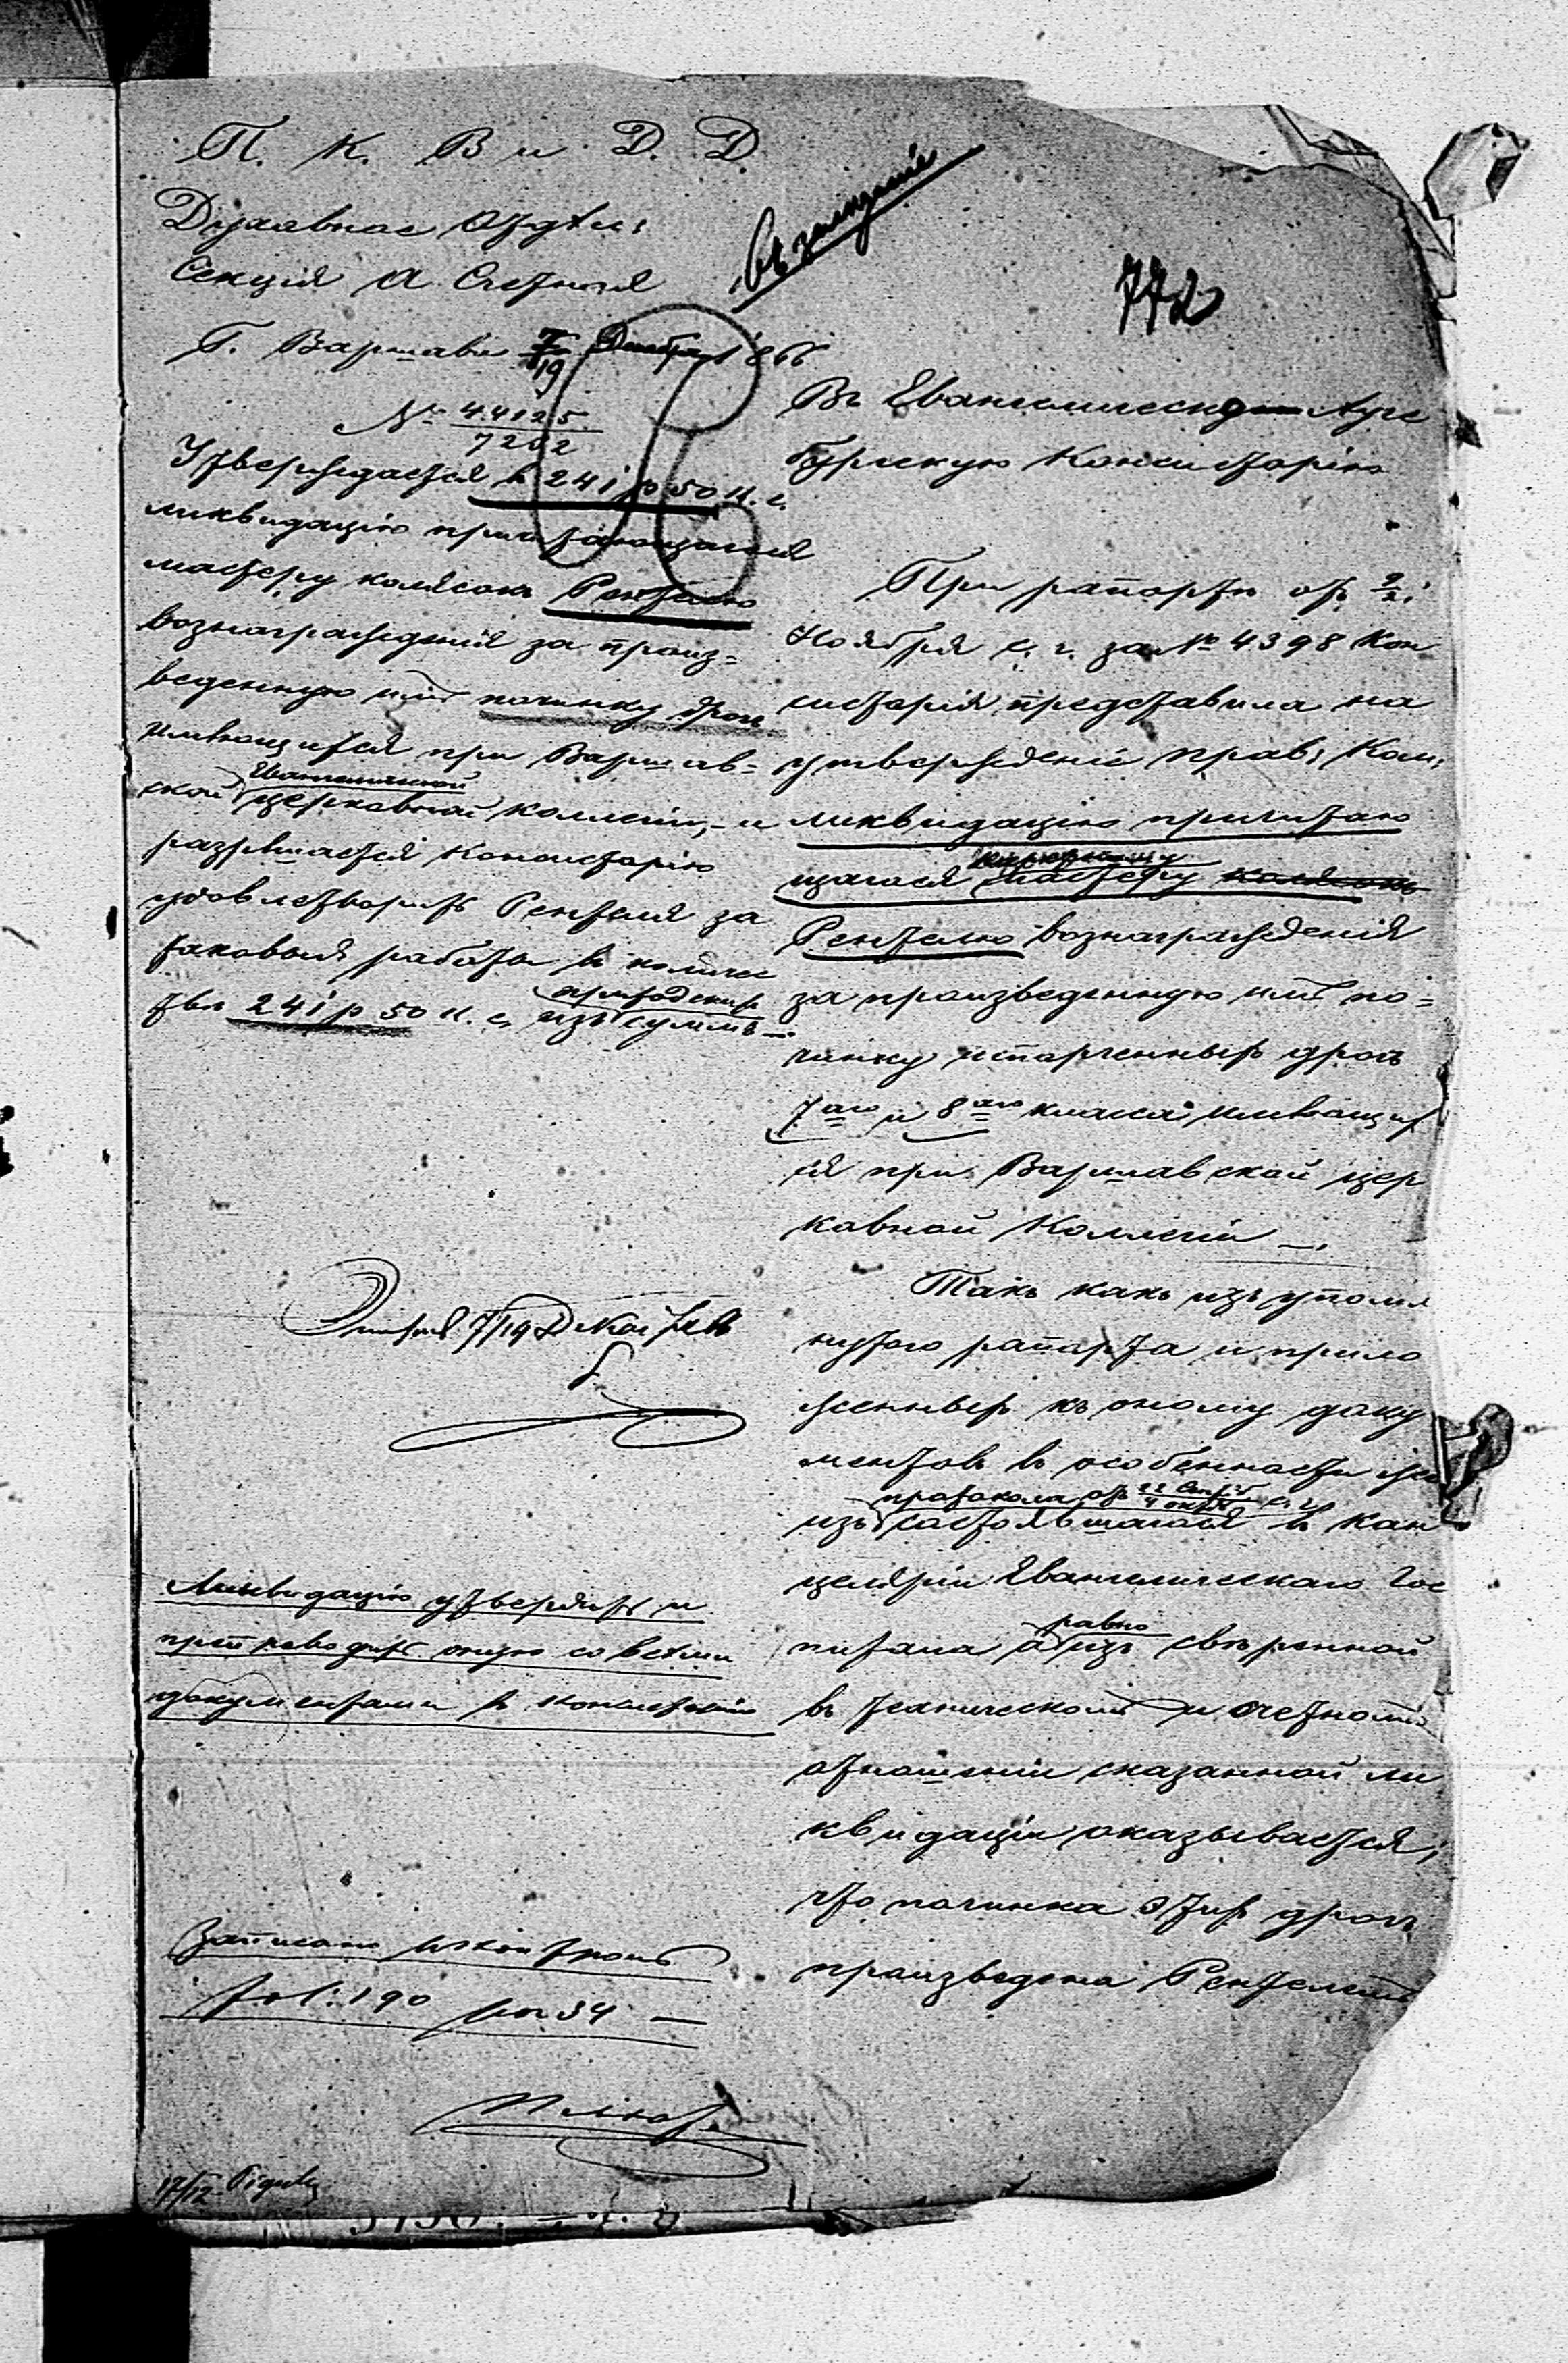 П. К. В и Д. Д
Духовное Отдѣл:
Секція Счетная
Г. Варшава 7/19 Декабря 1866
№ 44125/7202
Утверждается в 241 р 50 к. с.
ликвидацію причитающагося
мастеру колясокъ Рентелю
вознагражденія за произ=
веденную имъ починку дрогъ
имѣющихся при Варшав=
ской Евангелической церковной коллегіи, - и
разрѣшается Консисторію
удовлетворить Рентеля за
таковыя работы в количес
твѣ 241 р 50 к. с. изъ суммъ —
7/19
Ликвидацію утвердить и
препроводить оную со всѣми
документами в Консисторію
Записано
fol: 190 34 —
17/12
772
Въ Евангелическо Аугс
бургскую Консисторію
При рапортѣ отъ
Ноября с. г. за № 4398 Кон
систорія представила на
утвержденіе прав: Ком:
ликвидацію причитаю
щагося мастеру колясокъ
Рентелю вознагражденія
за произведенную имъ по=
чинку испорченныхъ дрогъ
7аго и 8аго класса имѣющих
ся при Варшавской цер
ковной Коллегіи —.
Такъ какъ изъ упомя
нутого рапорта и прило
женныхъ къ оному доку
ментовъ в особенности же
протокола отъ 22 Сент/4 Окт с. г.
изъ состоявшагося в Кан
целяріи Евангелическаго Гос
питаля а равно изъ свѣренной
въ техническомъ и счетномъ
отношеніи сказанной ли
квидаціи оказывается,
что починка этихъ дрогъ
произведена Рентелемъ